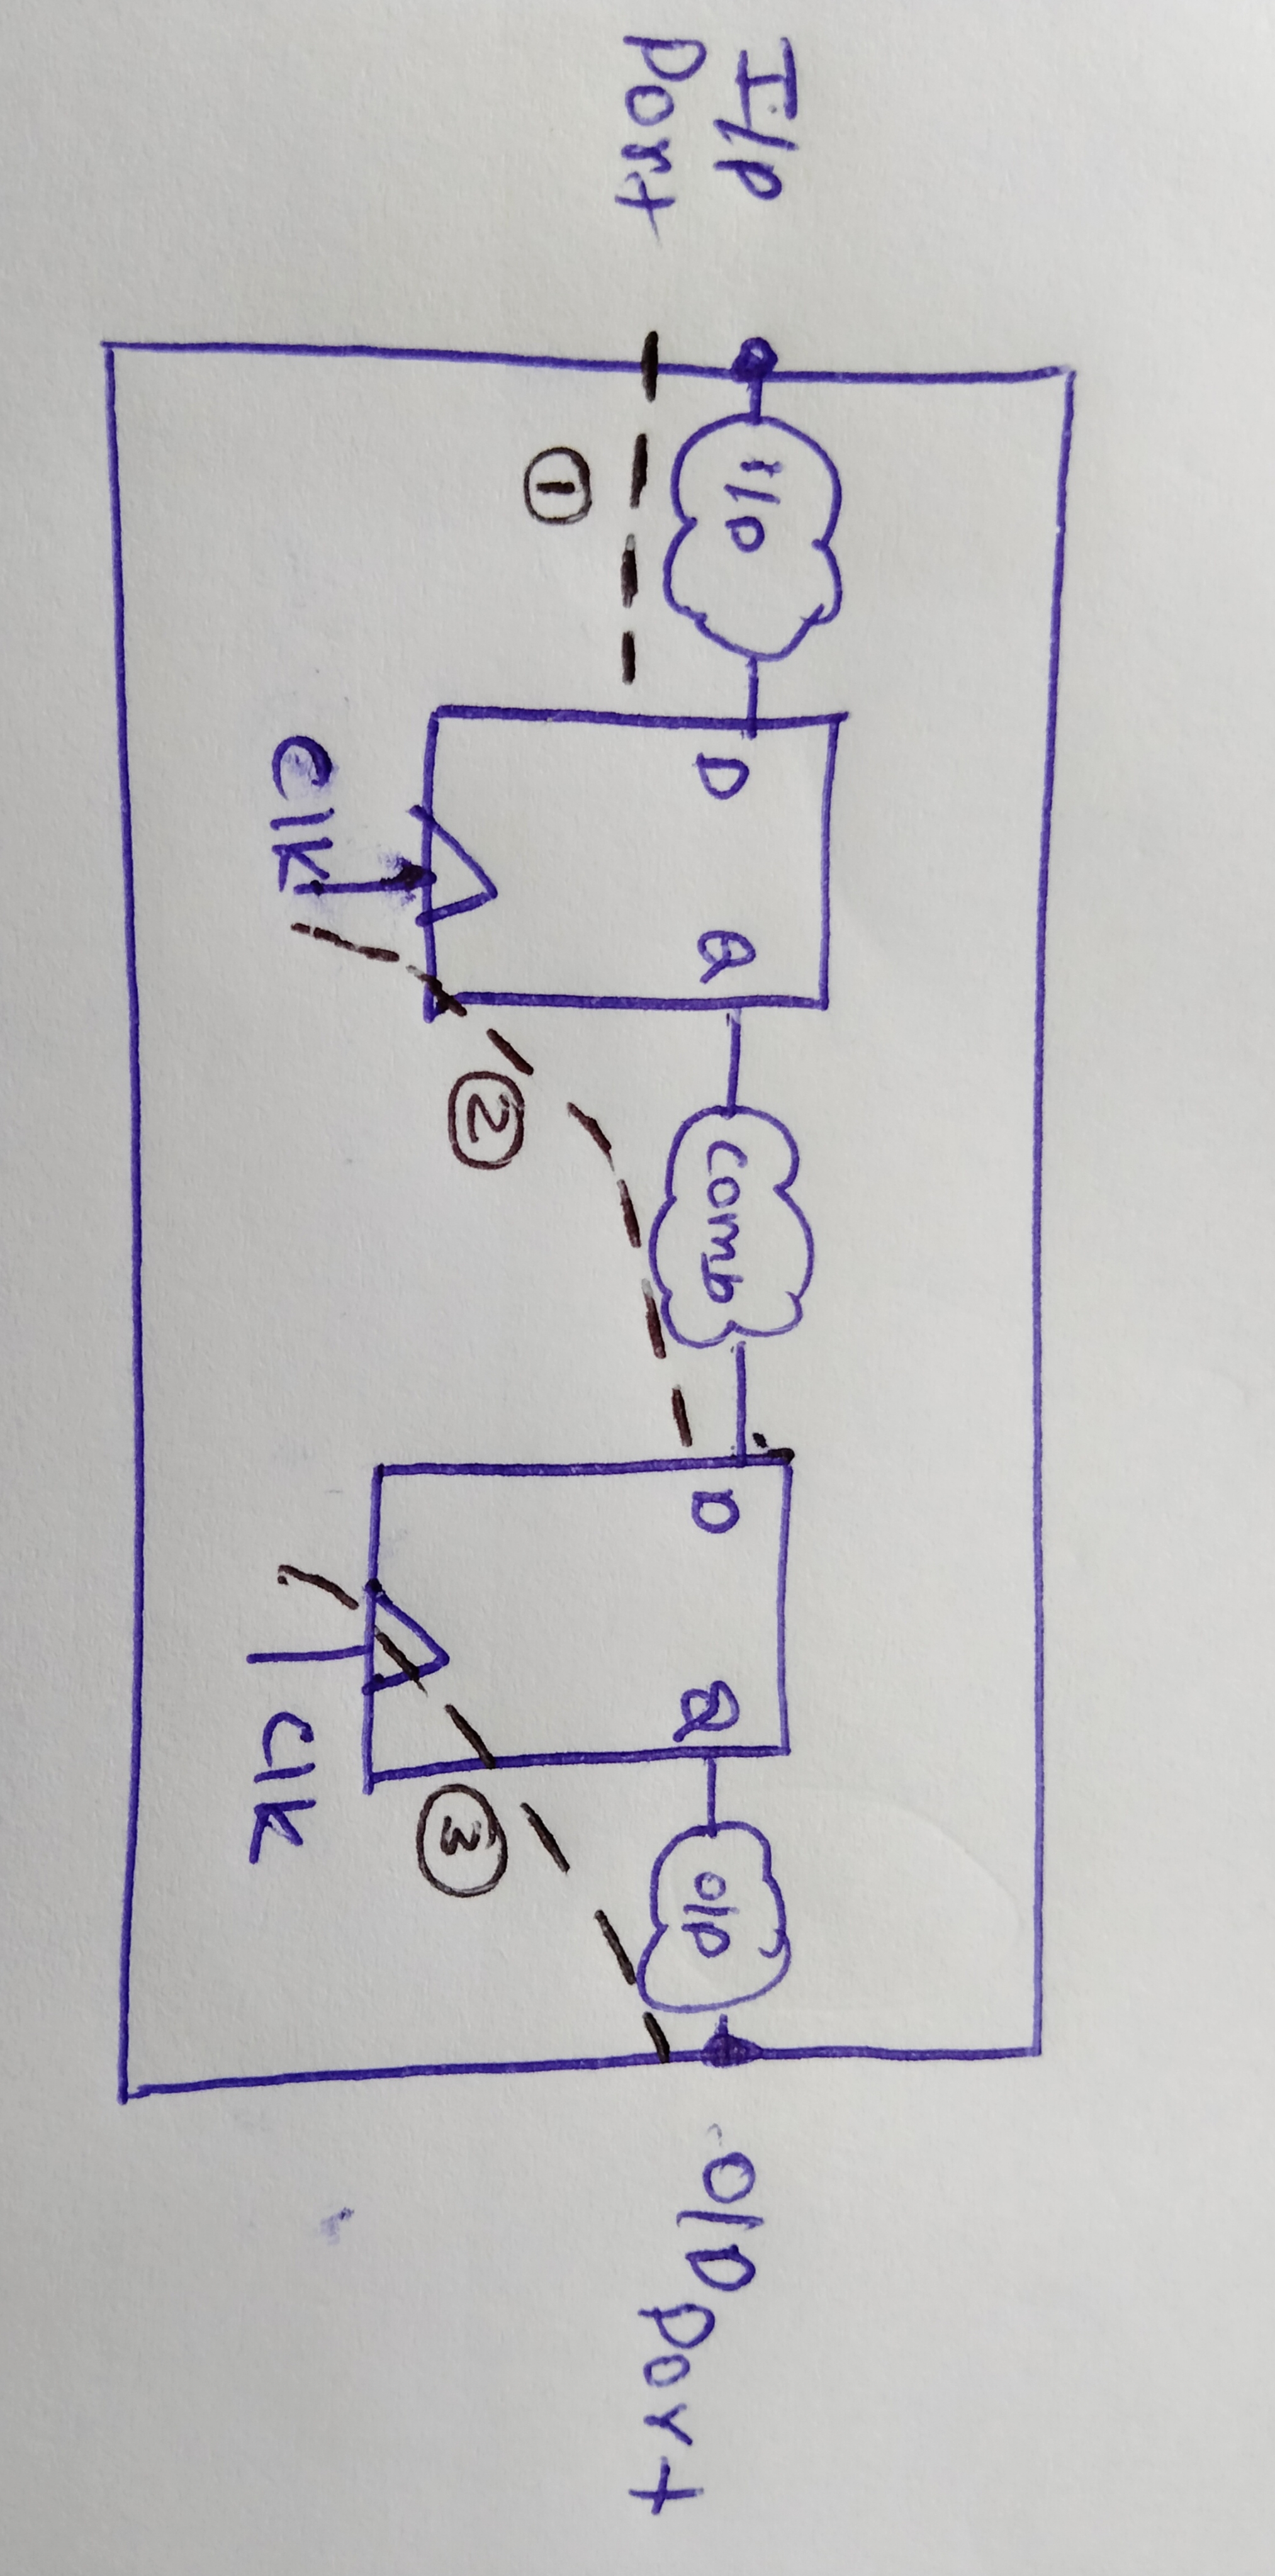 I/P
port
i/p
①
D
Q
Clk
②
comb
D
Q
Clk
③
o/p
O/P port